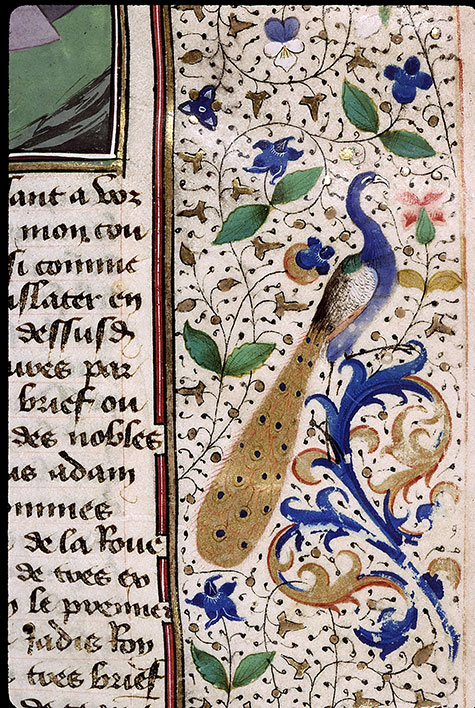 ant a voz
mon cou
si comme
nslater en
dessusd
uves par
brief ou
des nobles
is adam
ommes
de la Roue
de tres ex
le premier
Jadis Roy
tres brief